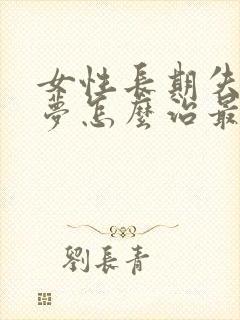 女性長期失
夢怎麼治最
劉長青